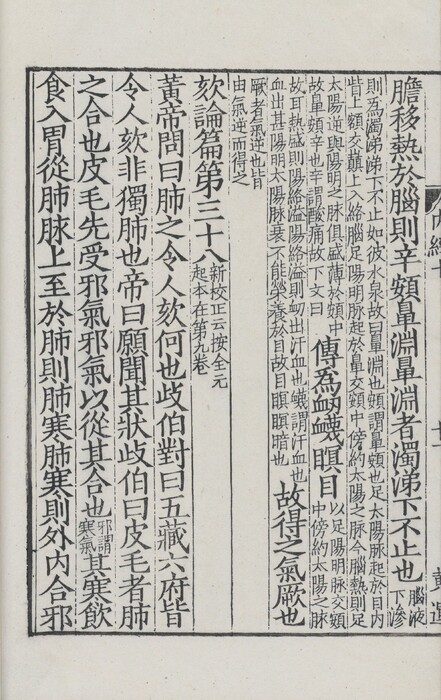 膽移熱於腦則辛頞鼻淵鼻淵者濁涕下不止也腦液下滲
則爲濁涕涕下不止如彼水泉故曰鼻淵也頞謂鼻頞也足太陽脉起於目內
眥上額交巓上入絡腦足陽明脉起於鼻交頞中傍約太陽之脉今腦熱則足
太陽逆與陽明之脉俱盛薄於頞中故鼻頞辛也辛謂酸痛故下文曰傳爲衂衊瞑目以足陽明脉交頞中傍約太陽之脉
故耳熱盛則陽絡溢陽絡溢則衂出汗血也衊謂汗血也血出甚陽明太陽脉衰不能榮養於目故目瞑瞑暗也故得之氣厥也
厥者氣逆也皆由氣逆而得之
欬論篇第三十八新校正云按全元起本在第九卷
黃帝問曰肺之令人欬何也歧伯對曰五藏六府皆
令人欬非獨肺也帝曰願聞其狀歧伯曰皮毛者肺
之合也皮毛先受邪氣邪氣以從其合也邪謂寒氣其寒飲
食入胃從肺脉上至於肺則肺寒肺寒則外內合邪